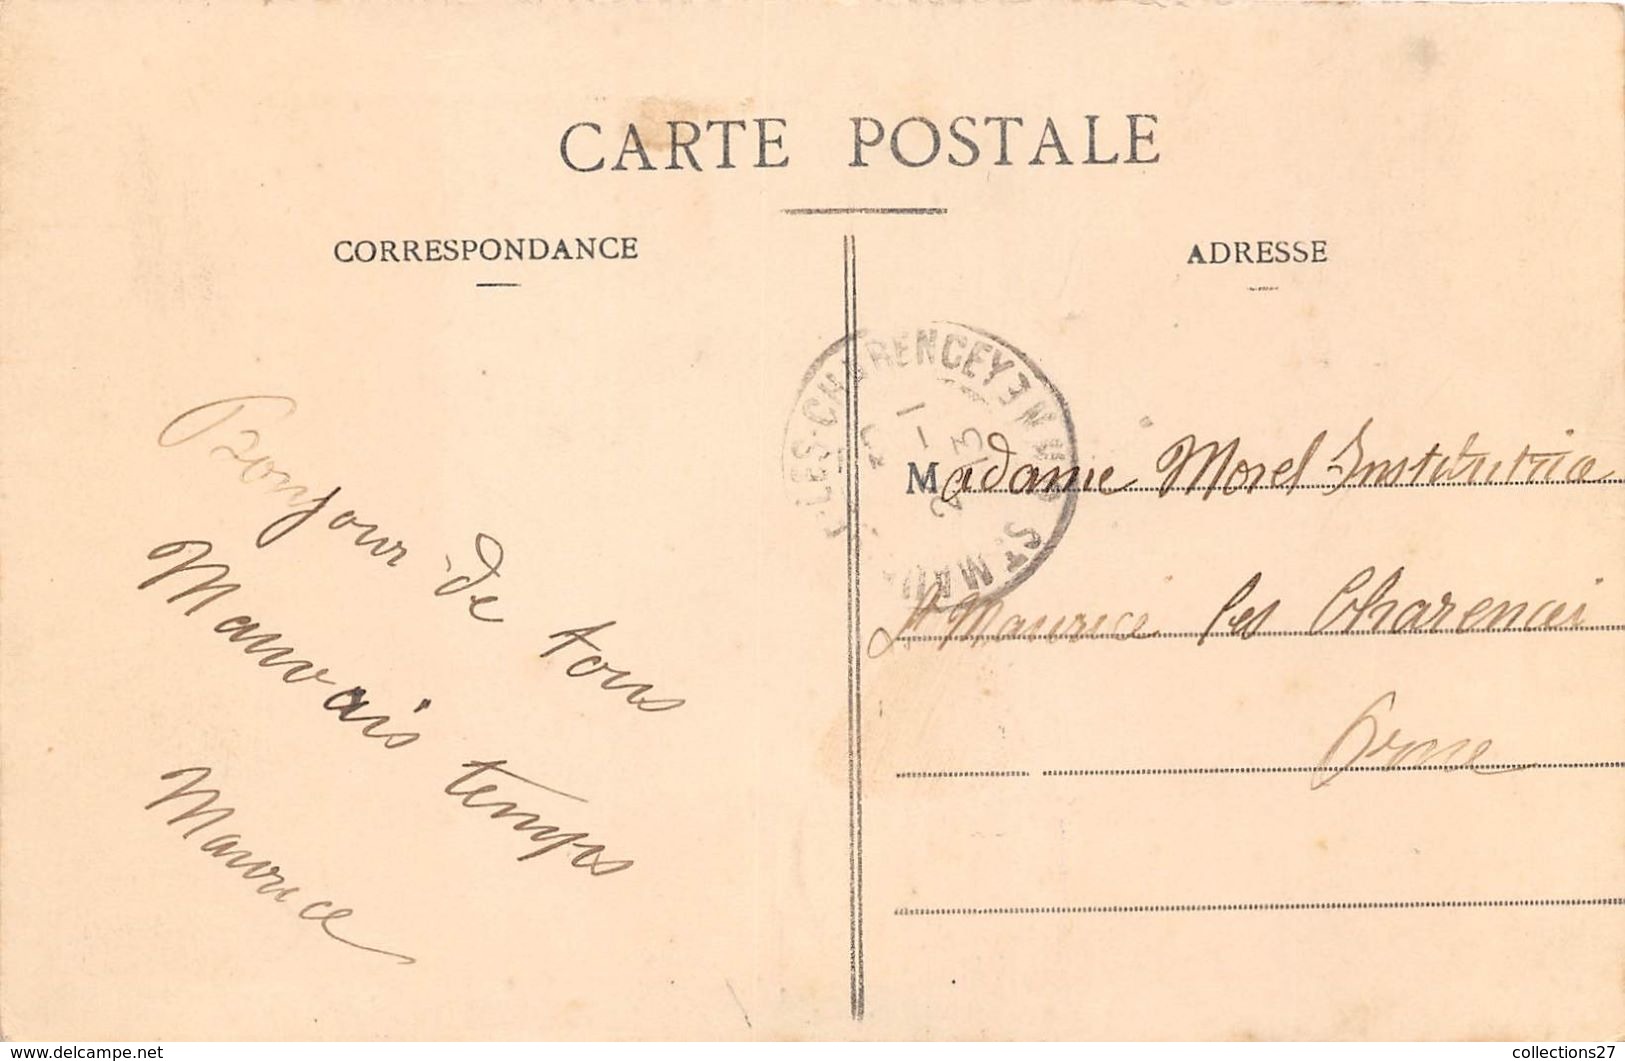 CARTE POSTALE
CORRESPONDANCE
ADRESSE
Bonjour de tous
Mauvais temps
Maurice
Madame Morel Institutrice
St Maurice les Charencei
Orne
LES-CHARENCEY
collections27